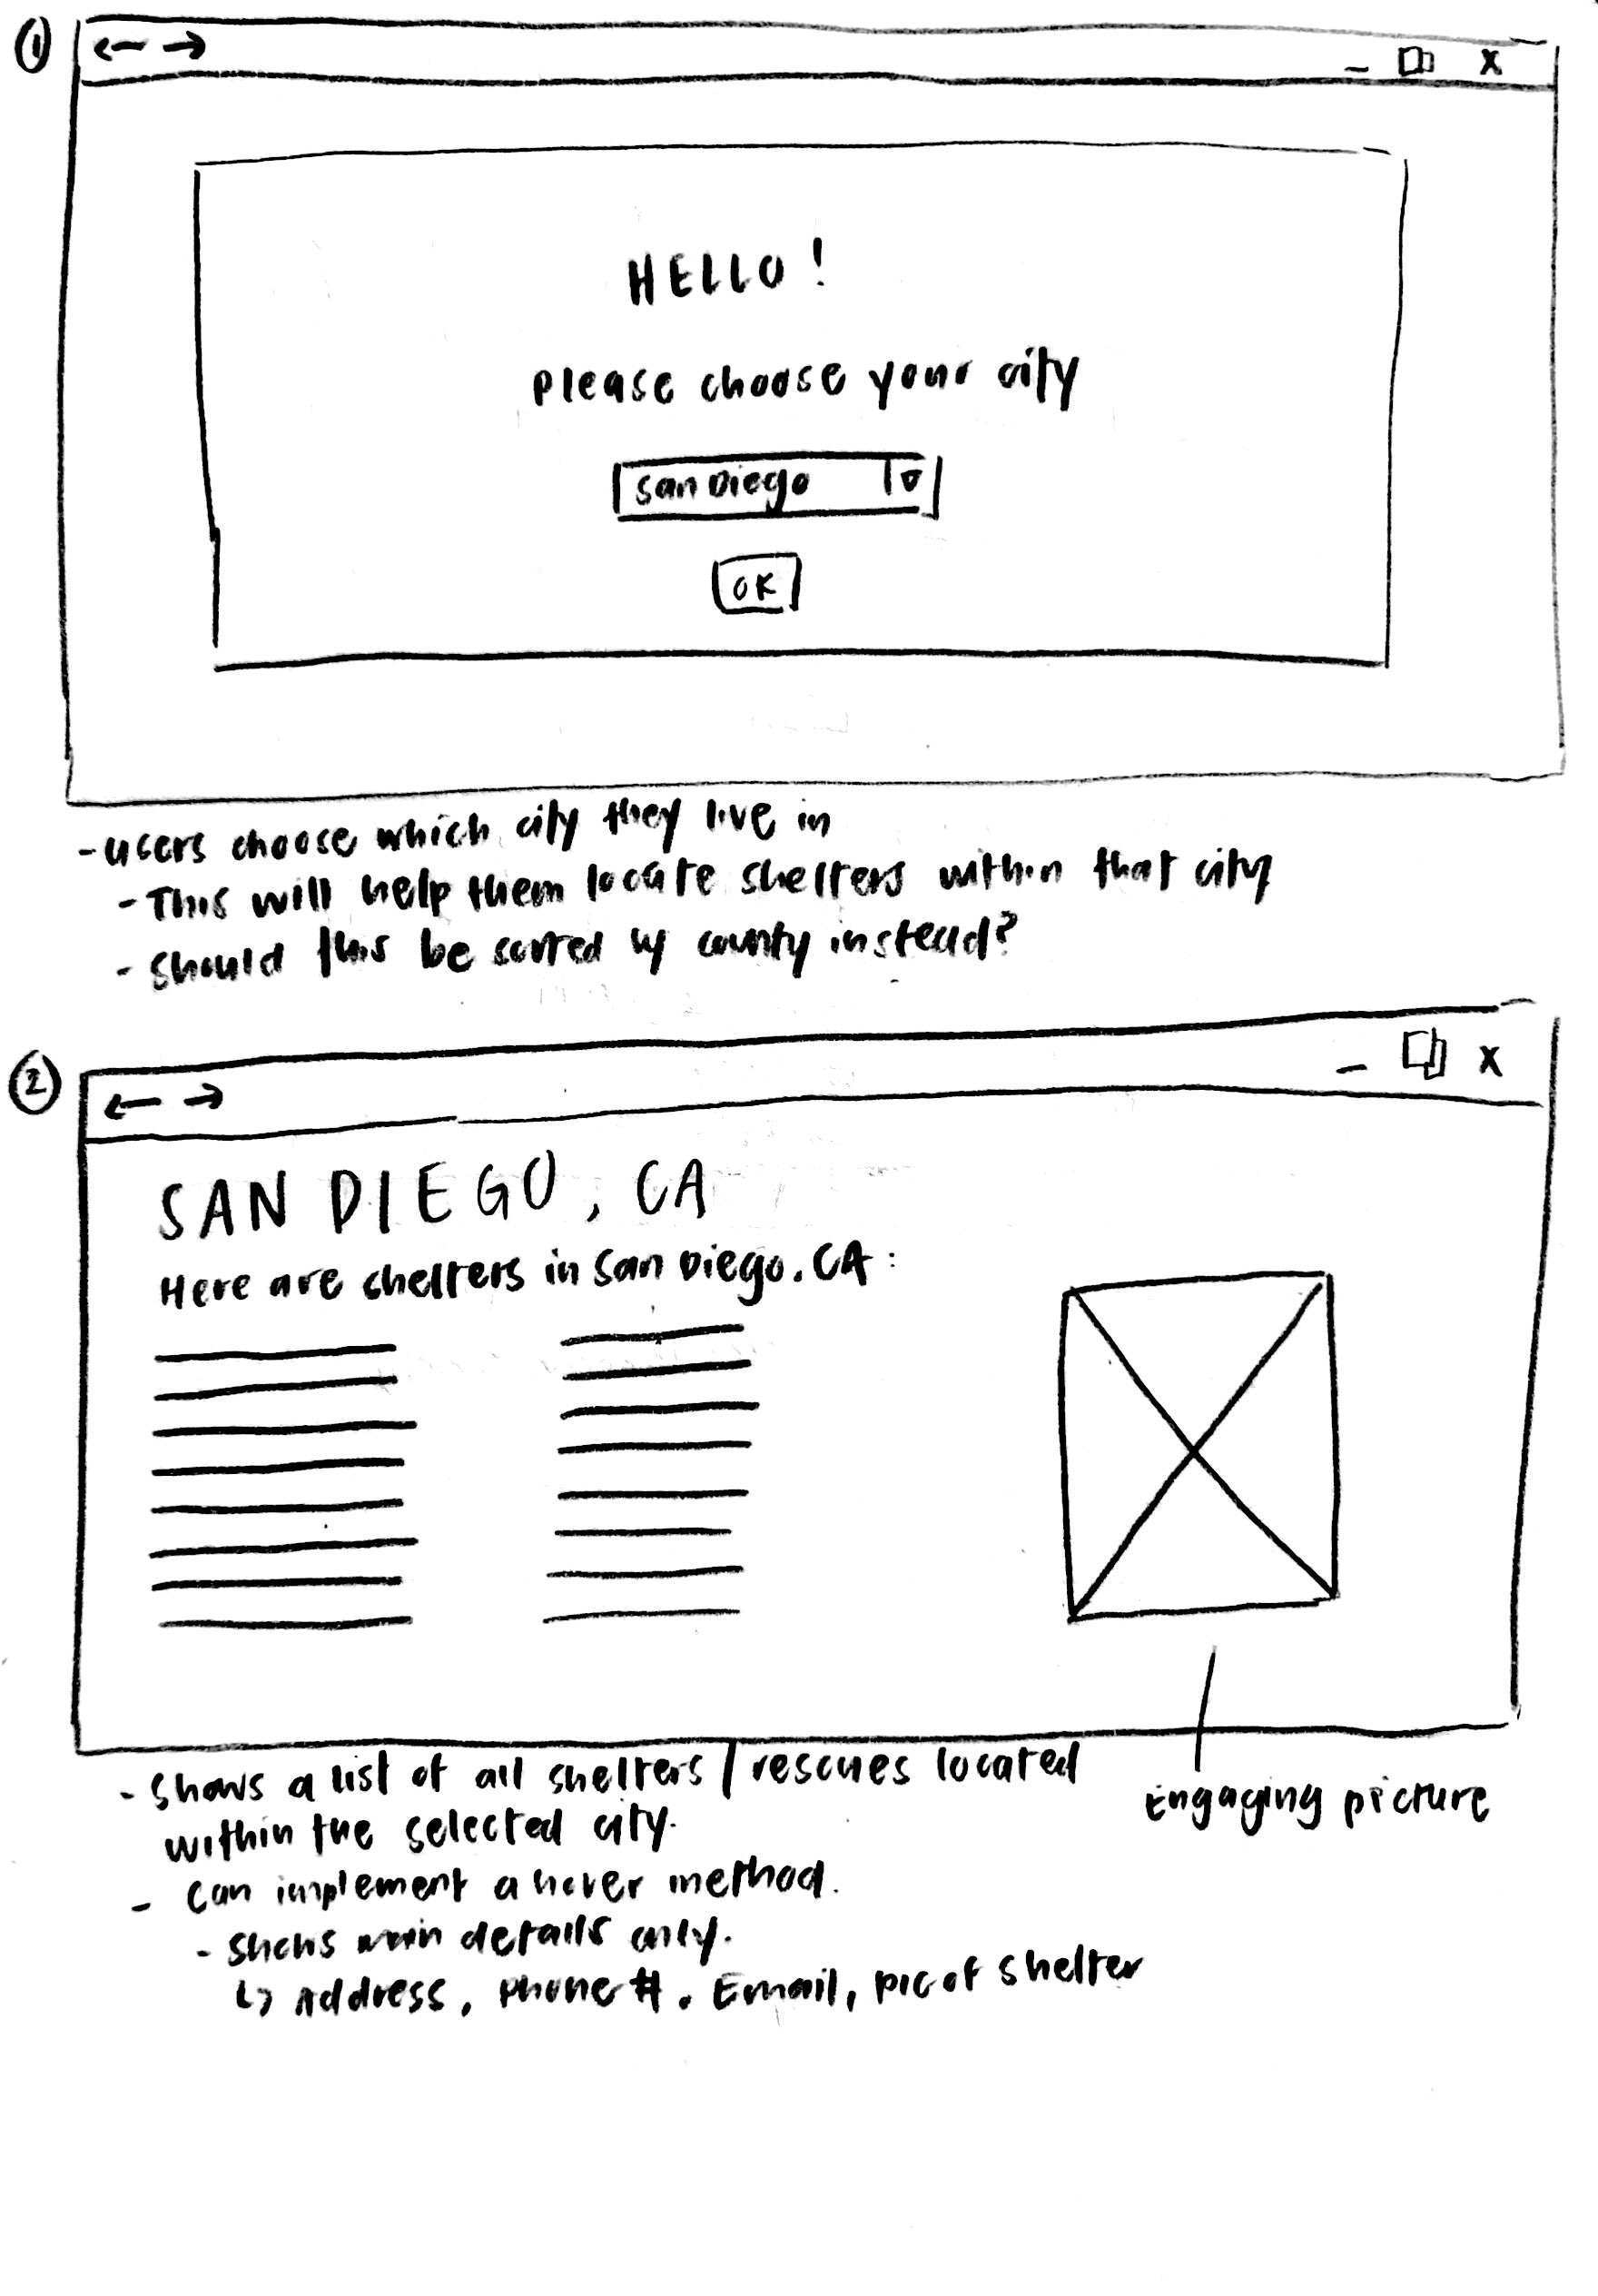 1
← → _ X
HELLO!
please choose your city
San Diego
OK
- users choose which city they live in
- This will help them locate shelters within that city
- Should this be sorted by county instead?
2
← → _ X
SAN DIEGO, CA
Here are shelters in San Diego, CA:
- Shows a list of all shelters / rescues located
within the selected city.
Engaging picture
- Can implement a hover method.
- Shows main details only.
↳ Address, Phone #, Email, pic of shelter